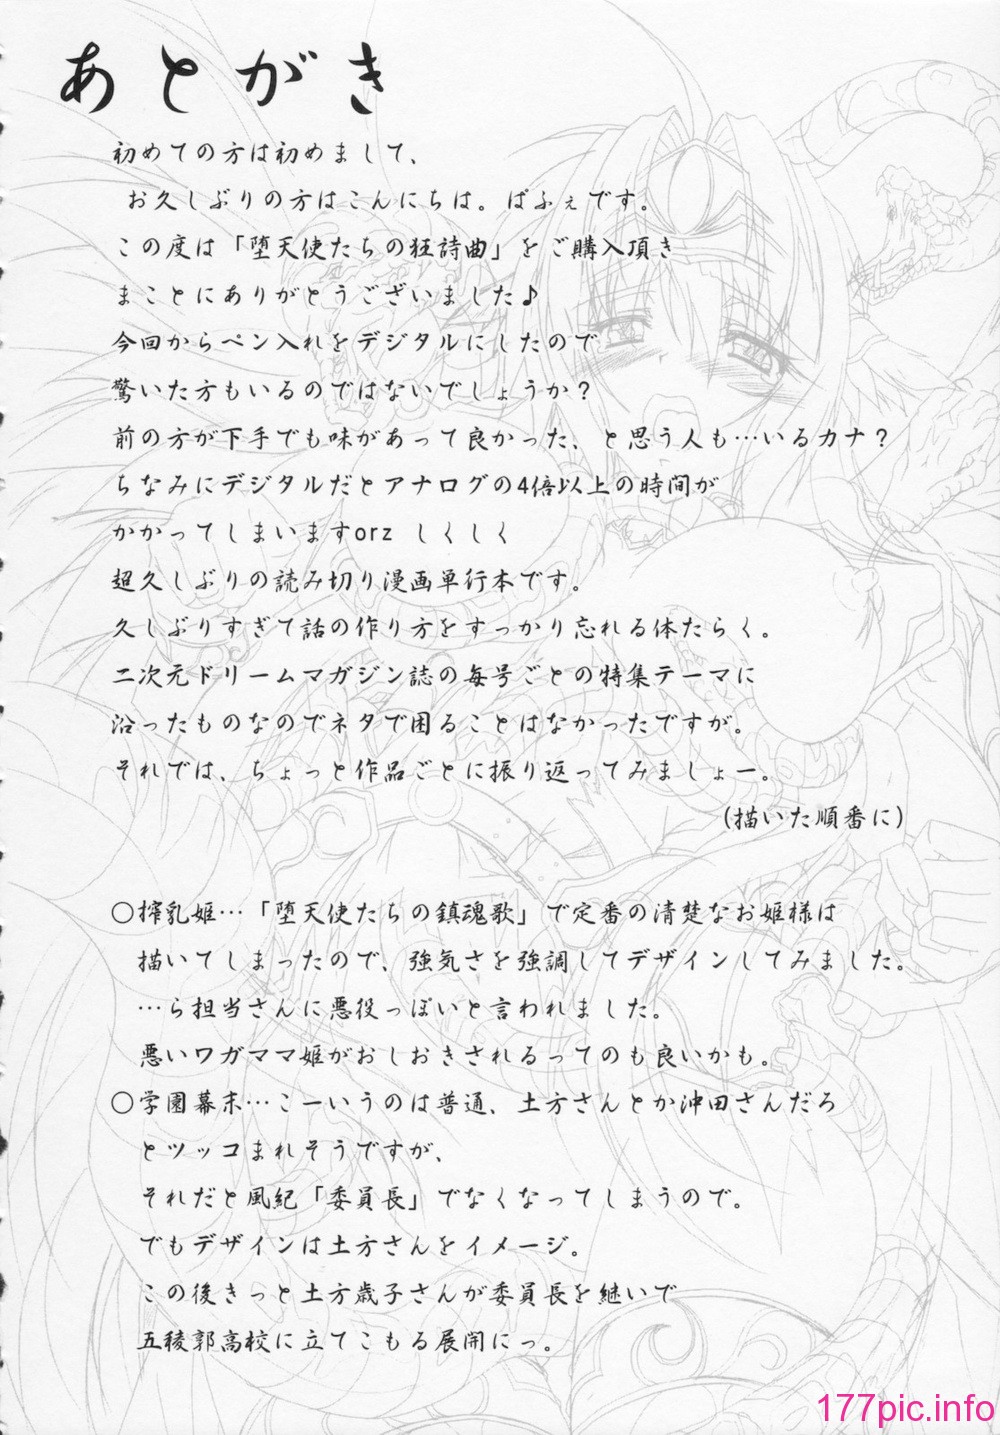 あとがき
初めての方は初めまして、
お久しぶりの方はこんにちは。ぱふぇです。
この度は「堕天使たちの狂詩曲」をご購入頂き
まことにありがとうございました♪
今回からペン入れをデジタルにしたので
驚いた方もいるのではないでしょうか？
前の方が下手でも味があって良かった、と思う人も…いるカナ？
ちなみにデジタルだとアナログの4倍以上の時間が
かかってしまいますorz しくしく
超久しぶりの読み切り漫画単行本です。
久しぶりすぎて話の作り方をすっかり忘れる体たらく。
二次元ドリームマガジン誌の毎号ごとの特集テーマに
沿ったものなのでネタで困ることはなかったですが。
それでは、ちょっと作品ごとに振り返ってみましょー。
(描いた順番に)
○搾乳姫…「堕天使たちの鎮魂歌」で定番の清楚なお姫様は
描いてしまったので、強気さを強調してデザインしてみました。
…ら担当さんに悪役っぽいと言われました。
悪いワガママ姫がおしおきされるってのも良いかも。
○学園幕末…こーいうのは普通、土方さんとか沖田さんだろ
とツッコまれそうですが、
それだと風紀「委員長」でなくなってしまうので。
でもデザインは土方さんをイメージ。
この後きっと土方歳子さんが委員長を継いで
五稜郭高校に立てこもる展開にっ。
177pic.info